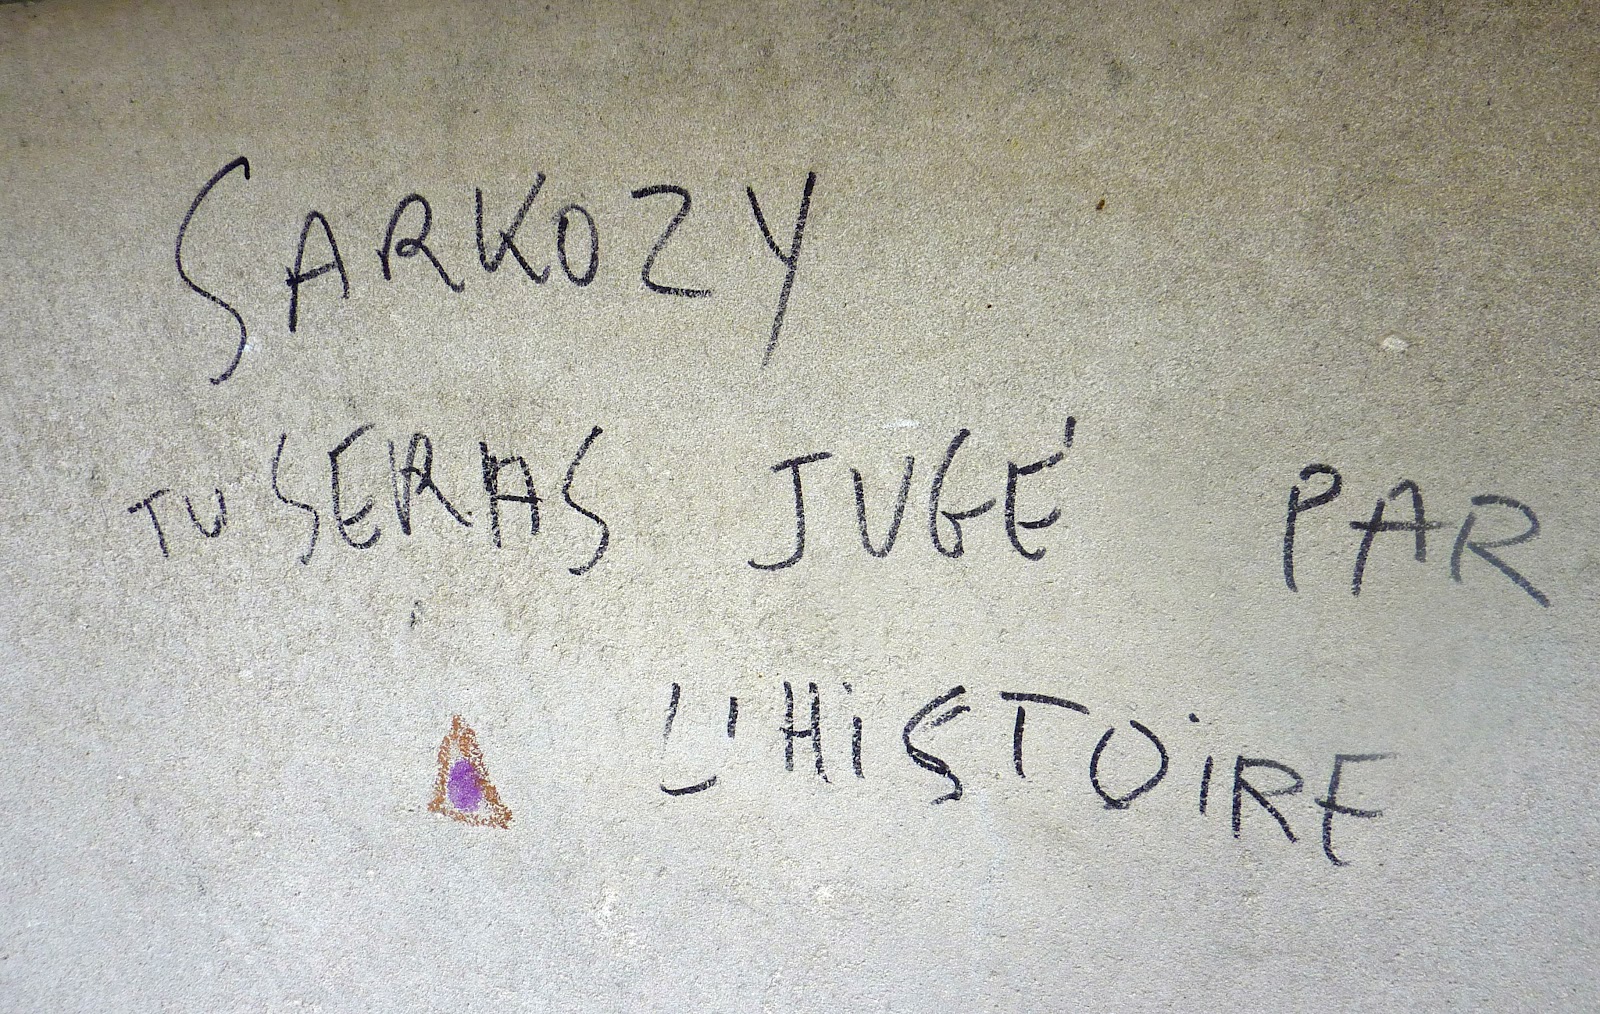 SARKOZY
TU SERAS JUGÉ PAR
L'HiSTOiRE